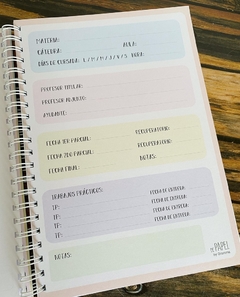 MATERIA:
CÁTEDRA: AULA:
DÍAS DE CURSADA: L / M / M / J / V / S HORA:
PROFESOR TITULAR:
PROFESOR ADJUNTO:
AYUDANTE:
FECHA 1ER PARCIAL: RECUPERATORIO:
FECHA 2DO PARCIAL: RECUPERATORIO:
FECHA FINAL: NOTAS:
TRABAJOS PRÁCTICOS: FECHA DE ENTREGA:
TP: FECHA DE ENTREGA:
TP: FECHA DE ENTREGA:
TP: FECHA DE ENTREGA:
TP:
NOTAS:
PAPEL